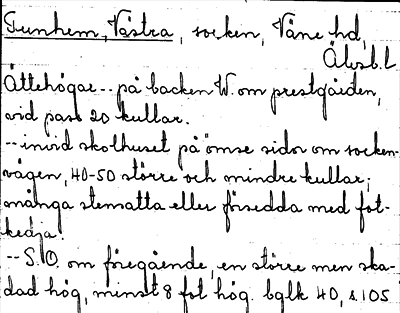 Tunhem, Västra, socken, Våne hd,
Älvsb.l
Ättehögar -- på backen W. om prestgården,
vid pass 20 kullar.
-- invid skolhuset på ömse sidor om socken-
vägen, 40-50 större och mindre kullar;
många stensatta eller försedda med fot-
kedja.
-- S.O. om föregående, en större men ska-
dad hög, minst 8 fot hög. bglk 40, s.105